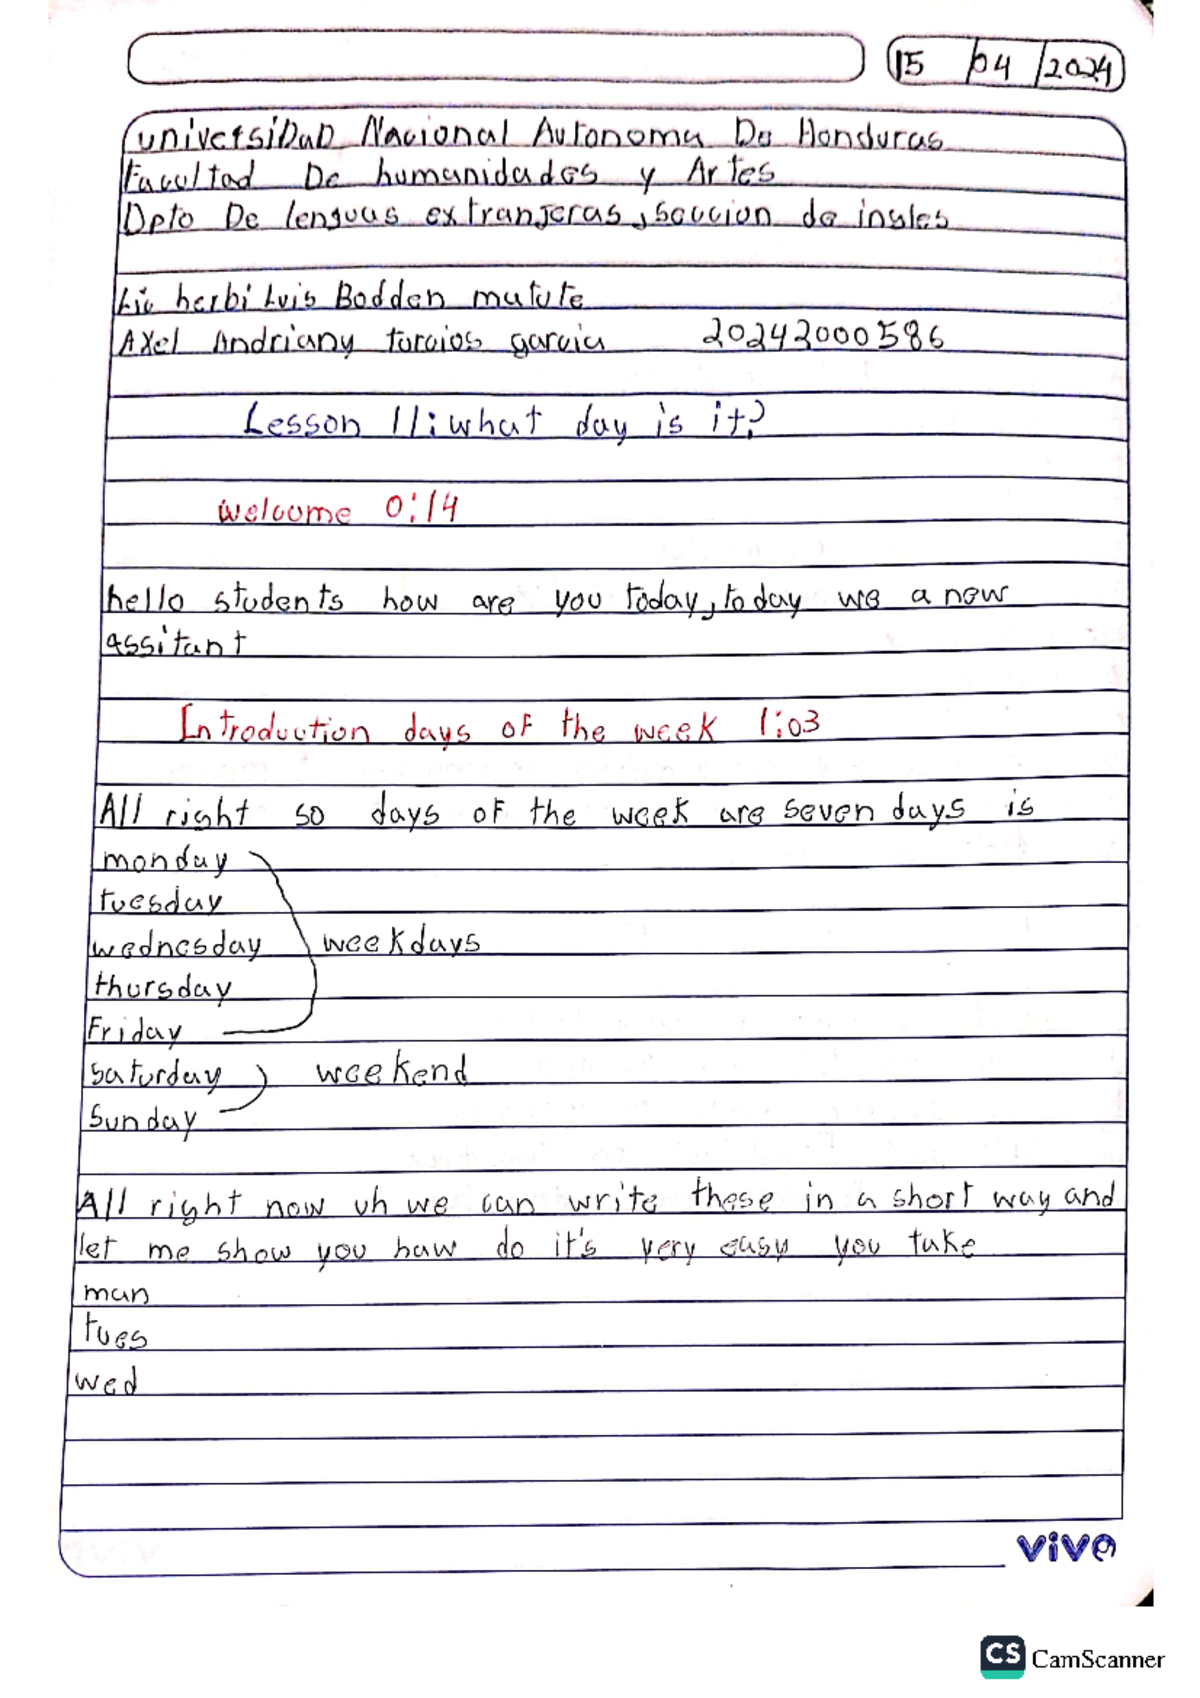 15 / 04 / 2024
universiDaD Nacional Autonoma De Honduras
Facultad De humanidades y Artes
Dpto De lenguas extranjeras, seccion de ingles
Lic herbi Luis Bodden matute
Axel Andriany torcios garcia 20242000586
Lesson 11: what day is it?
welcome 0:14
hello students how are you today, today we a new
assitant
Introduction days of the week 1:03
All right so days of the week are seven days is
monday
tuesday
wednesday weekdays
thursday
Friday
saturday weekend
Sunday
All right now uh we can write these in a short way and
let me show you haw do it's very easy you take
mun
tues
wed
vive
CS CamScanner